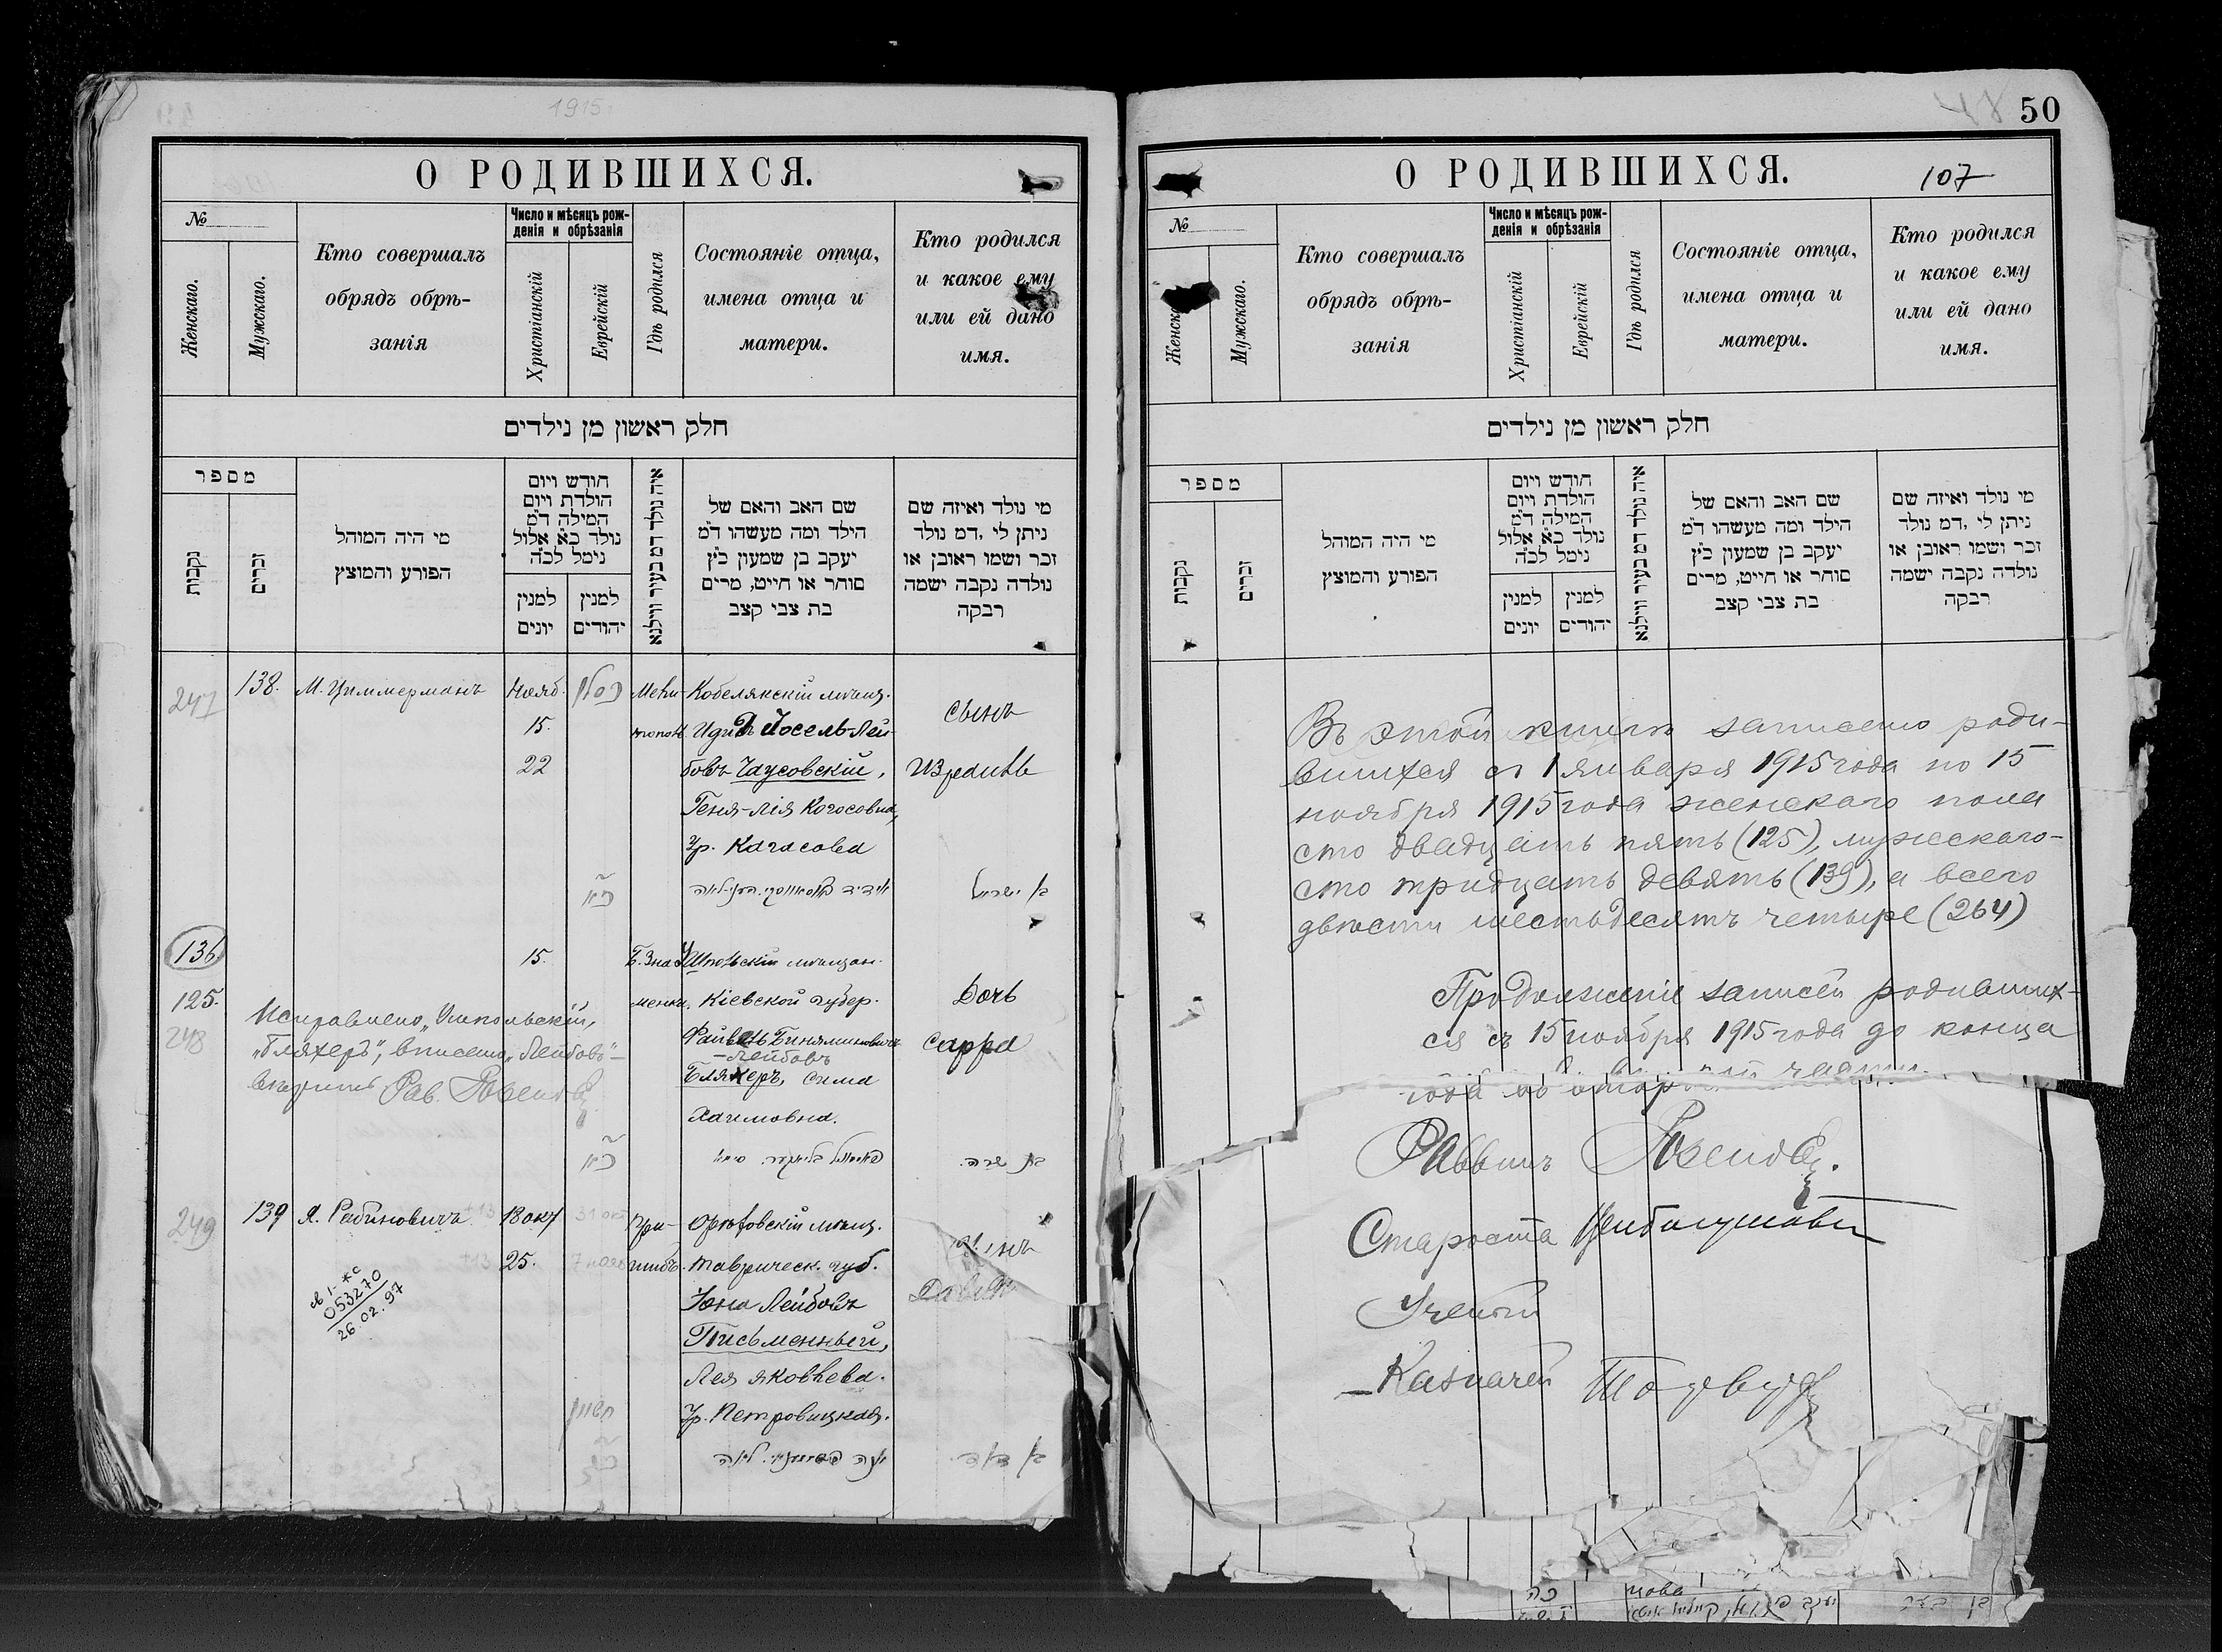 1915
О РОДИВШИХСЯ.
№
Женскаго.
Мужскаго.
Кто совершалъ
обрядъ обрѣ-
занія
Число и мѣсяцъ рож-
денія и обрѣзанія
Христіанскій
Еврейскій
Гдѣ родился
Состояніе отца,
имена отца и
матери.
Кто родился
и какое ему
или ей дано
имя.
חלק ראשון מן נילדים
מספר
נקבות
זכרים
מי היה המוהל
הפורע והמוצץ
חודש ויום
הולדת ויום
המילה ד״מ
נולד כ״א אלול
נימל לכ״ה
למנין
יונים
למנין
יהודים
איה נולד דמ בעיר ווילנא
שם האב והאם של
הילד ומה מעשהו ד״מ
יעקב בן שמעון כ״ץ
סוחר או חייט, מרים
בת צבי קצב
מי נולד ואיזה שם
ניתן לי ,דמ נולד
זכר ושמו ראובן או
נולדה נקבה ישמה
רבקה
247
138.
М. Циммерманъ
Нояб.
כסלו
15.
22
Кобелякскій мѣщ.
Іосель Лей-
бовъ Чаусовскій,
Геня-Лія Когосовна,
Ур. Кагасова
сынъ
Израиль
בן ישראל
136
125.
248
15.
Шпольскій мѣщан.
Кіевской губер.
Файвель Биняминовичъ
-Лейбовъ
Бляхеръ, Сима
Хаимовна.
Дочь
Сарра
בת שרה.
Исправлено „Шпольскій,
„Бляхеръ", вписано „Лейбовъ"-
Рав.
249
139
Я. Рабиновичъ
18 окт
31 окт
25.
Орѣховскій мѣщ.
Таврическ. губ.
Іона Лейбовъ
Письменный,
Лея Яковлева.
Ур. Петровицкая.
חשון
сынъ
Давидъ
בן דוד.
053270
26.02.97
48
50
О РОДИВШИХСЯ.
107
№
Мужскаго.
Кто совершалъ
обрядъ обрѣ-
занія
Число и мѣсяцъ рож-
денія и обрѣзанія
Христіанскій
Еврейскій
Гдѣ родился
Состояніе отца,
имена отца и
матери.
Кто родился
и какое ему
или ей дано
имя.
חלק ראשון מן נילדים
מספר
נקבות
זכרים
מי היה המוהל
הפורע והמוצץ
חודש ויום
הולדת ויום
המילה ד״מ
נולד כ״א אלול
נימל לכ״ה
למנין
יונים
למנין
יהודים
איה נולד דמ בעיר ווילנא
שם האב והאם של
הילד ומה מעשהו ד״מ
יעקב בן שמעון כ״ץ
סוחר או חייט, מרים
בת צבי קצב
מי נולד ואיזה שם
ניתן לי ,דמ נולד
זכר ושמו ראובן או
נולדה נקבה ישמה
רבקה
Въ этой книгѣ записано роди-
вшихся съ 1 января 1915 года по 15
ноября 1915 года женскаго пола
сто двадцать пять (125), мужскаго-
сто тридцать девять (139), а всего
двѣсти шестьдесятъ четыре (264)
Продолженіе записей родивших-
ся съ 15 ноября 1915 года до конца
года во второй части.
Раввинъ
Староста
Ученый
Казначей